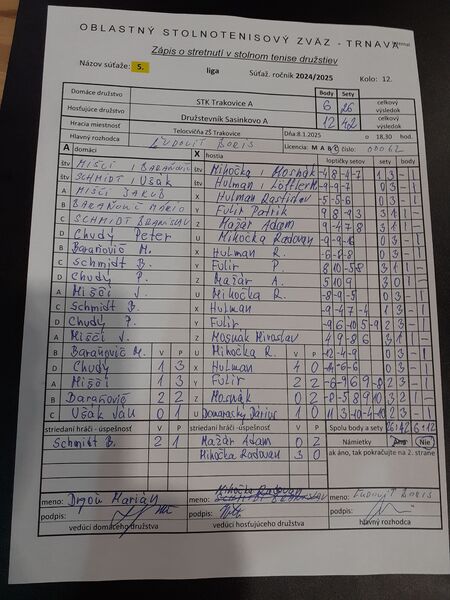 OBLASTNÝ STOLNOTENISOVÝ ZVÄZ - TRNAVA
Zápis o stretnutí v stolnom tenise družstiev
Názov súťaže: 5. liga Súťaž. ročník 2024/2025 Kolo: 12.
Body Sety
Domáce družstvo STK Trakovice A 6 26 celkový výsledok
Hosťujúce družstvo Družstevník Sasinkovo A 12 42 celkový výsledok
Hracia miestnosť Telocvičňa ZŠ Trakovice Dňa 8.1.2025 o 18,30 hod.
Hlavný rozhodca ĽUDOVÍT BORIS Licencia: M A B C číslo: 00062
A domáci X hostia loptičky setov sety body
štv MIŠČÍ, BARAŇOVIČ štv Mihočka, Mosnák 1 3 - 1
štv SCHMIDT, Ušák štv Hulman, Löffler -9-9-7 0 3 - 1
A MIŠČÍ JAKUB X Hulman Rastislav -5-5-6 0 3 - 1
B BARAŇOVIČ MARIO Y Fülir Patrik 9 8 -9 3 3 1 1 -
C SCHMIDT BRANISLAV Z Mažár Adam 9 -4 7 8 3 1 1 -
D Chudý Peter U Mihočka Radovan -9-9-6 0 3 - 1
B Baraňovič M. X Hulman R. -6-8-8 0 3 - 1
C Schmidt B. Y Fülir P. 8 10 -5 8 3 1 1 -
D Chudý P. Z Mažár A. 5 10 9 3 0 1 -
A Miščí J. U Mihočka R. -8-9-5 0 3 - 1
C Schmidt B. X Hulman -9-4 7-4 1 3 - 1
D Chudý P. Y Fülir -9 6-10 5-9 2 3 - 1
A Miščí J. Z Mosnák Miroslav 4 9 -8 6 3 1 1 -
B Baraňovič M. V P U Mihočka R. V P -12-4-9 0 3 - 1
D Chudý 1 3 X Hulman 4 0 0 3 - 1
A Miščí 1 3 Y Fülir 2 2 -6-9 6 9-8 2 3 - 1
B Baraňovič 2 2 Z Mosnák 0 2
C Ušák Ján 0 1 U Domaracký Dárius 1 0 11 3-10-4-10 2 3 - 1
striedaní hráči - úspešnosť striedaní hráči - úspešnosť Spolu body a sety 26:42 6:12
Schmidt B. 2 1 Mažár Adam 0 2 Námietky Áno Nie
Mihočka Radovan 3 0 ak áno, tak pokračujte na 2. strane
meno: Drgoň Marián meno: Mihočka Radovan meno: ĽUDOVÍT BORIS
podpis: podpis: podpis:
vedúci domáceho družstva vedúci hosťujúceho družstva hlavný rozhodca